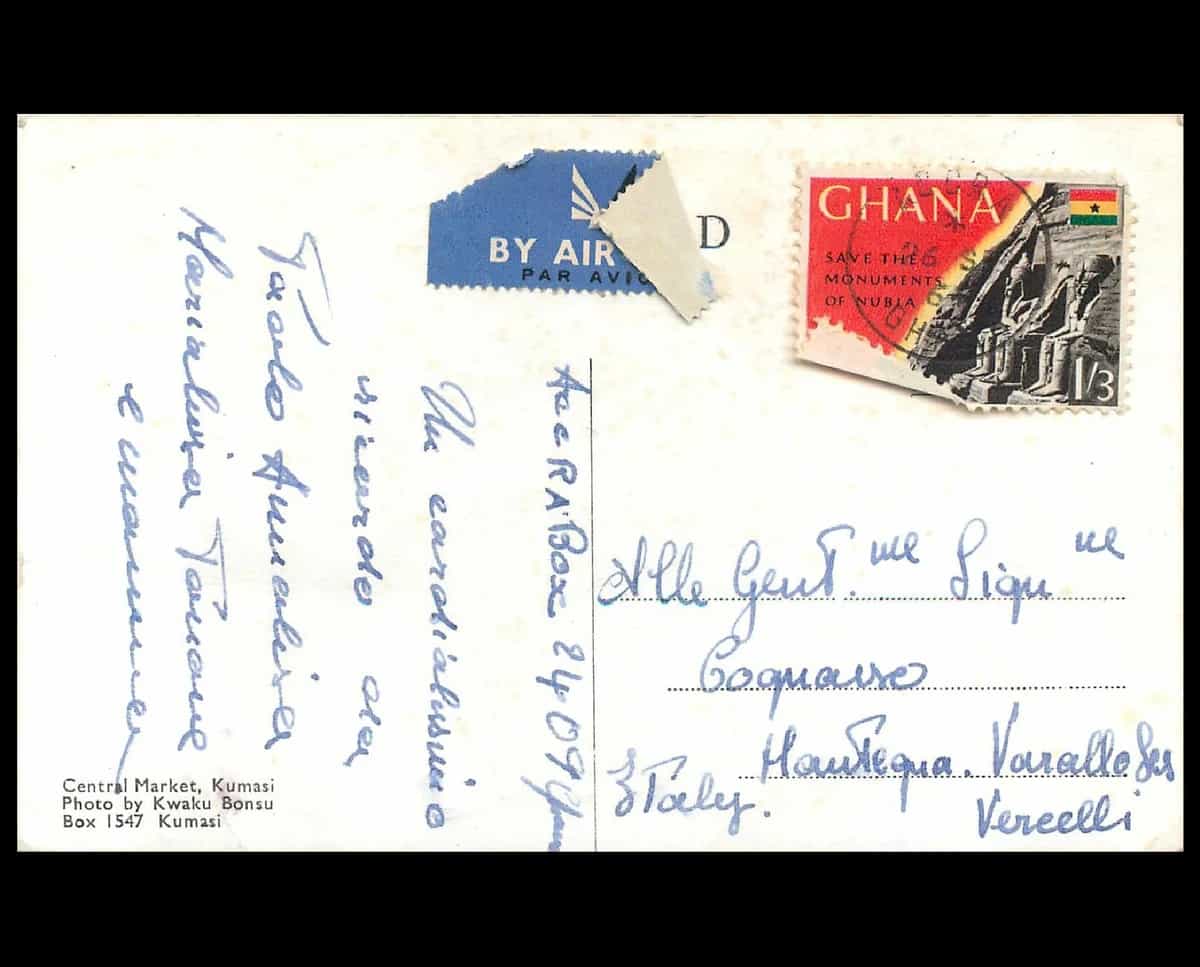 BY AIR
PAR AVIO
D
GHANA
SAVE THE
MONUMENTS
OF NUBIA
1/3
AccRA Box 2409 Ghana
Un cordialissimo
ricordo da
Paolo Annalisa
Marialuisa Tonino
e mamma
Alle Gent.me Sign ne
Cognasso
Mantegna. Varallo Ses
Vercelli
Italy.
Central Market, Kumasi
Photo by Kwaku Bonsu
Box 1547 Kumasi